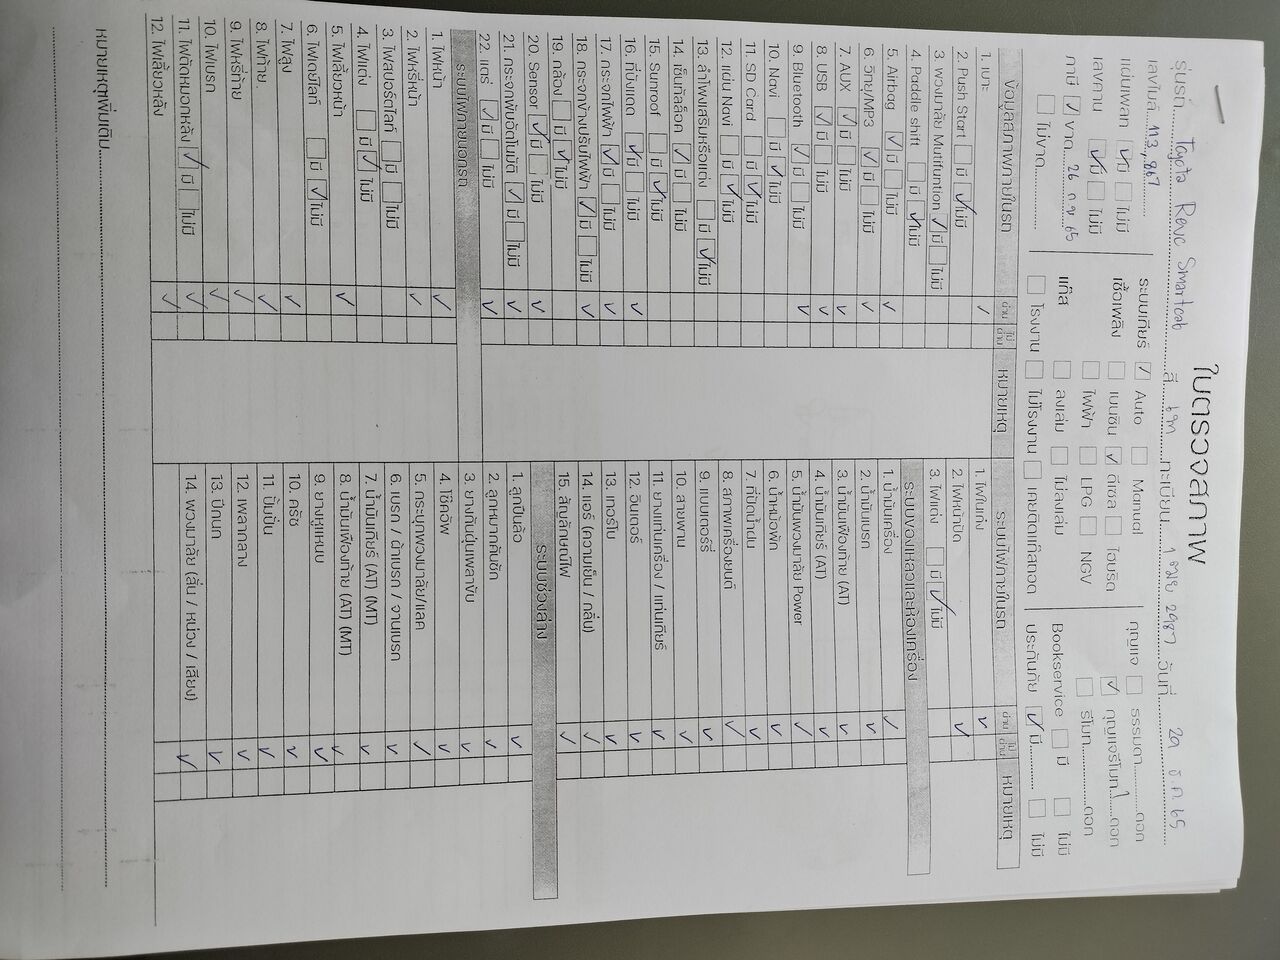 ใบตรวจสภาพ
รุ่นรถ Toyota Revo Smartcab สี เทา ทะเบียน 1 ขม 2987 วันที่ 29 ธ.ค. 65
เลขไมล์ 113,867 ระบบเกียร์ ☑ Auto ☐ Manual กุญแจ ☐ ธรรมดา ดอก
แผ่นเพลท ☑ มี ☐ ไม่มี เชื้อเพลิง ☐ เบนซิน ☑ ดีเซล ☐ ไฮบริด ☑ กุญแจรีโมท 1 ดอก
เลขถาน ☑ มี ☐ ไม่มี ☐ ไฟฟ้า ☐ LPG ☐ NGV ☐ รีโมท ดอก
ภาษี ☑ ขาด 26 ก.ย. 65 แก๊ส ☐ ลงเล่ม ☐ ไม่ลงเล่ม Bookservice ☐ มี ☐ ไม่มี
☐ ไม่ขาด ☐ โรงงาน ☐ ไม่โรงงาน ☐ เคยติดแก๊สถอด ประกันภัย ☑ มี ☐ ไม่มี
ข้อมูลสภาพภายในรถ ผ่าน ไม่ผ่าน หมายเหตุ
1. เบาะ ✓
2. Push Start ☐ มี ☑ ไม่มี
3. พวงมาลัย Mutifuntion ☑ มี ☐ ไม่มี
4. Paddle shift ☐ มี ☑ ไม่มี
5. Airbag ☑ มี ☐ ไม่มี ✓
6. วิทยุ/MP3 ☑ มี ☐ ไม่มี ✓
7. AUX ☑ มี ☐ ไม่มี ✓
8. USB ☑ มี ☐ ไม่มี ✓
9. Bluetooth ☑ มี ☐ ไม่มี ✓
10. Navi ☐ มี ☑ ไม่มี
11. SD Card ☐ มี ☑ ไม่มี
12. แผ่น Navi ☐ มี ☑ ไม่มี
13. ลำโพงเสริมหรือแต่ง ☐ มี ☑ ไม่มี
14. เซ็นทัลล็อค ☑ มี ☐ ไม่มี
15. Sunroof ☐ มี ☑ ไม่มี
16. ที่บังแดด ☑ มี ☐ ไม่มี ✓
17. กระจกไฟฟ้า ☑ มี ☐ ไม่มี ✓
18. กระจกข้างปรับไฟฟ้า ☑ มี ☐ ไม่มี ✓
19. กล้อง ☐ มี ☑ ไม่มี
20. Sensor ☑ มี ☐ ไม่มี ✓
21. กระจกพับอัตโนมัติ ☑ มี ☐ ไม่มี ✓
22. แตร ☑ มี ☐ ไม่มี ✓
ระบบไฟภายนอกรถ
1. ไฟหน้า ✓
2. ไฟหรี่หน้า ✓
3. ไฟสปอร์ตไลท์ ☐ มี ☐ ไม่มี
4. ไฟแต่ง ☐ มี ☑ ไม่มี
5. ไฟเลี้ยวหน้า ✓
6. ไฟเดย์ไลท์ ☐ มี ☑ ไม่มี
7. ไฟสูง ✓
8. ไฟท้าย ✓
9. ไฟหรี่ท้าย ✓
10. ไฟเบรก ✓
11. ไฟตัดหมอกหลัง ☑ มี ☐ ไม่มี ✓
12. ไฟเลี้ยวหลัง ✓
ระบบไฟภายในรถ ผ่าน ไม่ผ่าน หมายเหตุ
1. ไฟในเก๋ง ✓
2. ไฟหน้าปัด ✓
3. ไฟแต่ง ☐ มี ☑ ไม่มี
ระบบของเหลวและห้องเครื่อง
1. น้ำมันเครื่อง ✓
2. น้ำมันเบรก ✓
3. น้ำมันเฟืองท้าย (AT) ✓
4. น้ำมันเกียร์ (AT) ✓
5. น้ำมันพวงมาลัย Power ✓
6. น้ำหม้อพัก ✓
7. ที่ปัดน้ำฝน ✓
8. สภาพเครื่องยนต์ ✓
9. แบตเตอรี่ ✓
10. สายพาน ✓
11. ยางแท่นเครื่อง / แท่นเกียร์ ✓
12. อินเตอร์ ✓
13. เทอร์โบ ✓
14. แอร์ (ความเย็น / กลิ่น) ✓
15. สัญลักษณ์ไฟ ✓
ระบบช่วงล่าง
1. ลูกปืนล้อ ✓
2. ลูกหมากคันชัก ✓
3. ยางกันฝุ่นเพลาขับ ✓
4. โช๊คอัพ ✓
5. กระปุกพวงมาลัย/แลค ✓
6. เบรก / ผ้าเบรก / จานเบรก ✓
7. น้ำมันเกียร์ (AT) (MT) ✓
8. น้ำมันเฟืองท้าย (AT) (MT) ✓
9. ยางหูแหนบ ✓
10. ครัช ✓
11. ปั๊มปั่น ✓
12. เพลากลาง ✓
13. ปีกนก ✓
14. พวงมาลัย (ลื่น / หน่วง / เสียง) ✓
หมายเหตุเพิ่มเติม